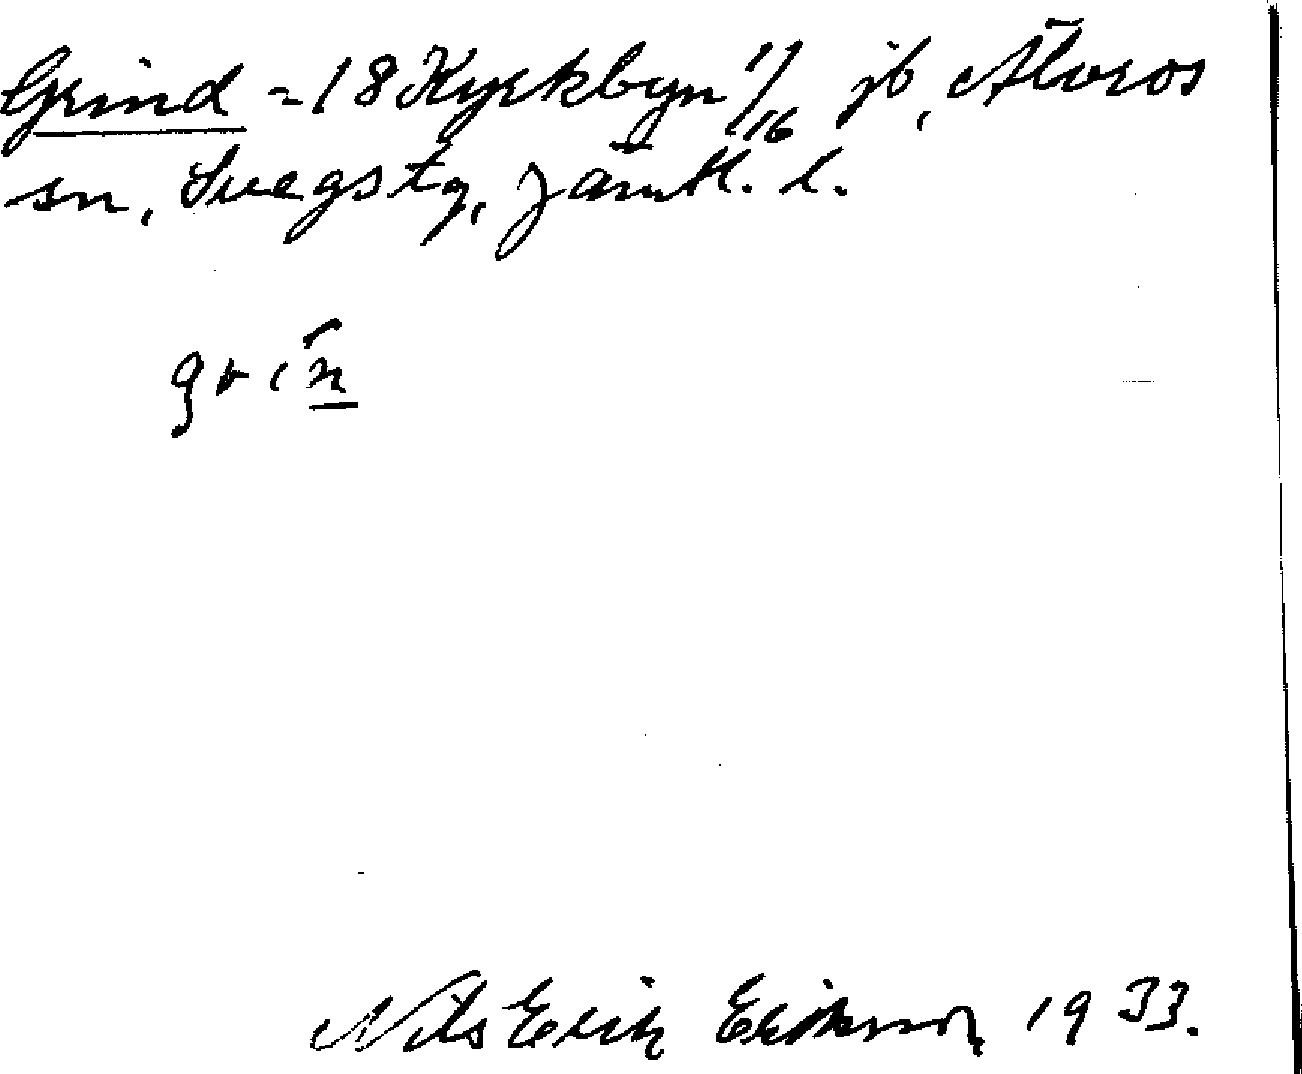 Grind = 18 Kyrkbyn 1/16 jb, Älvros
sn, Svegs tg, Jämtl. l.
grin
Nils Erik Eriksson 1933.